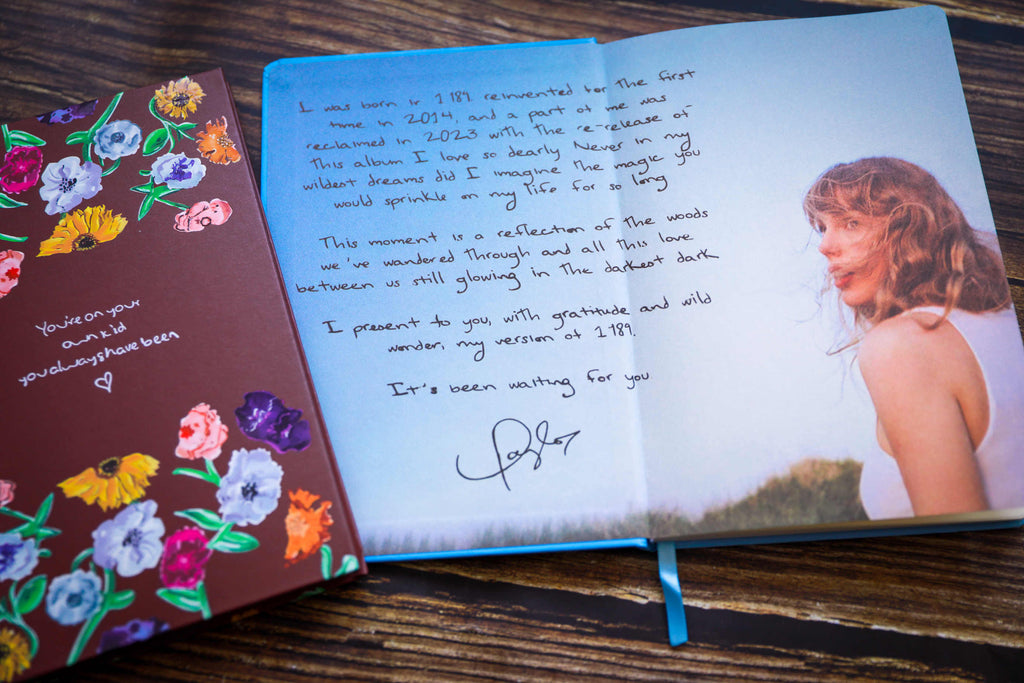 You're on your
own kid
you always have been
I was born in 1989, reinvented for the first
time in 2014, and a part of me was
reclaimed in 2023 with the re-release of
this album I love so dearly. Never in my
wildest dreams did I imagine the magic you
would sprinkle on my life for so long
This moment is a reflection of the woods
we've wandered through and all this love
between us still glowing in the darkest dark
I present to you, with gratitude and wild
wonder, my version of 1989.
It's been waiting for you
Taylor